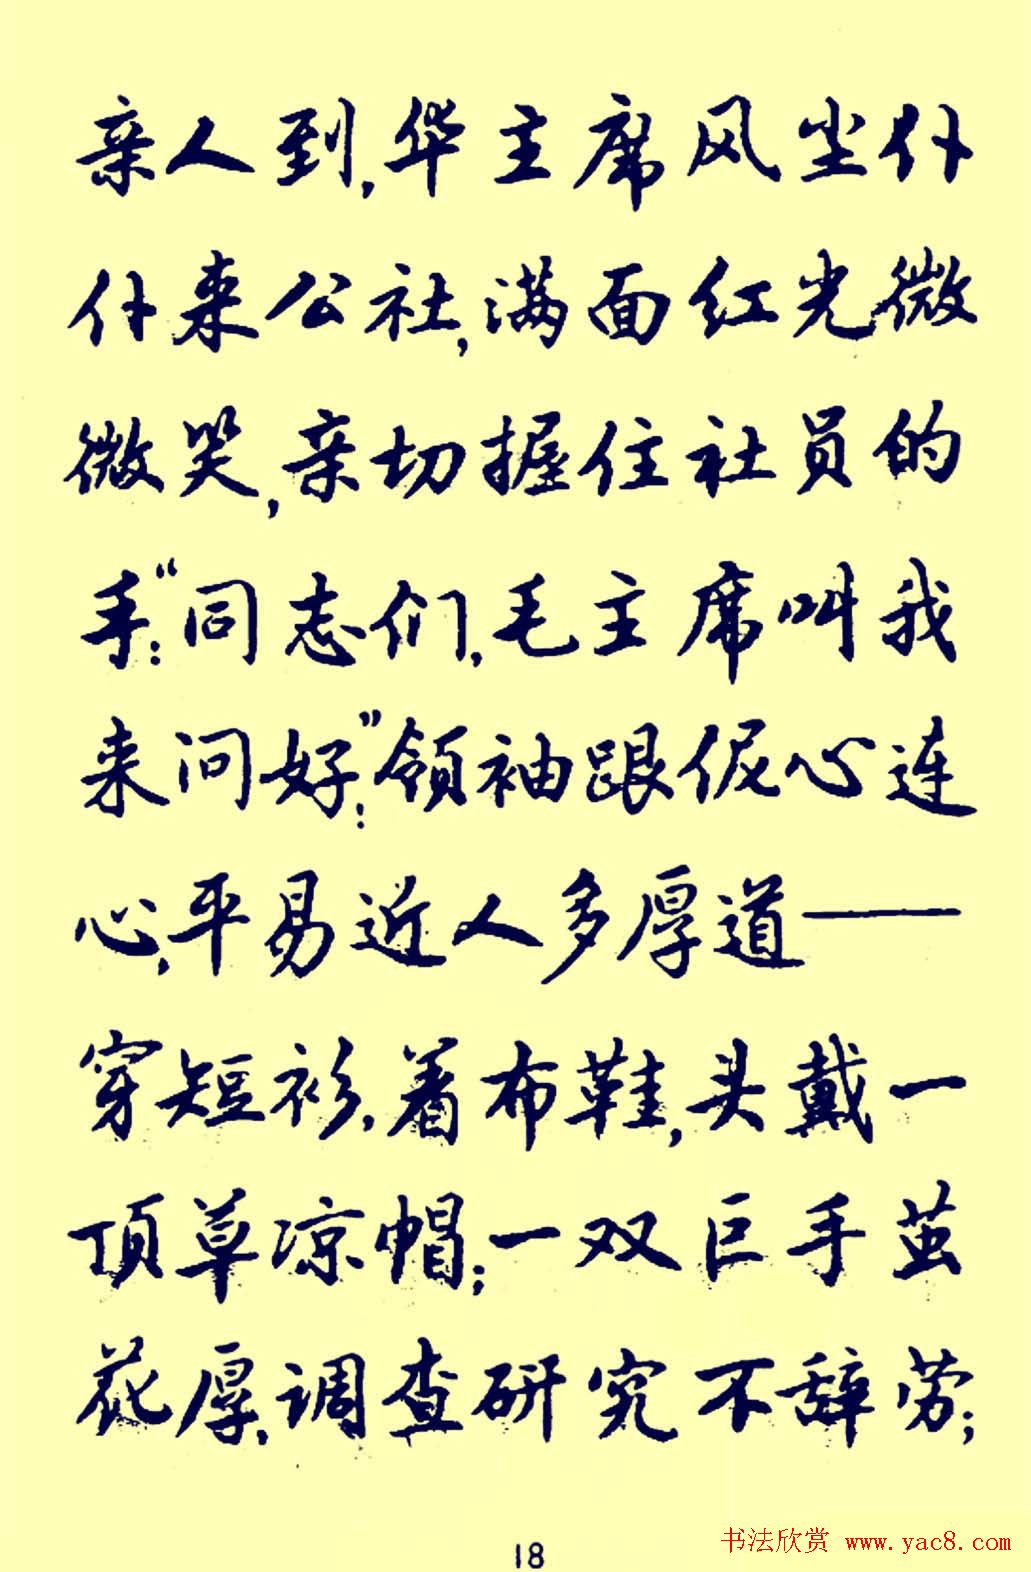 亲人到,华主席风尘仆
仆来公社,满面红光微
微笑,亲切握住社员的
手:“同志们,毛主席叫我
来问好”:领袖跟伲心连
心,平易近人多厚道——
穿短衫,着布鞋,头戴一
顶草凉帽;一双巨手茧
花厚,调查研究不辞劳;
18
书法欣赏 www.yac8.com